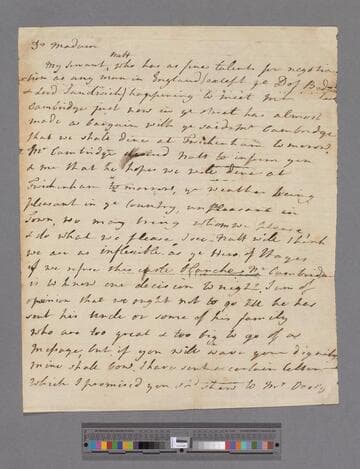 Dr Madam
Natt
My servant, who has as fine talents for negotia-
-tion as any man in England (except ye D of Bedford
& Lord Sandwich) happening to meet Mr
Cambridge just now in ye street has almost
made a bargain with ye said Mr Cambridge
that we shall dine at Twickenham to morrow.
Mr Cambridge desired Natt to inform you
& me that he hopes we will dine at
Twickenham to morrow, ye weather being
pleasant in ye Country, unpleasant in
Town, we may bring whom we please
& do what we please, I see Natt will think
we are as inflexible as ye Hero of
if we refuse this Mr Cambridge
is to know our decision to night. I am of
opinion that we ought not to go till he has
sent his Uncle or some of his family
who are too great & too big to go of a
message, but if you will wave your dignity
mine shall bow. I have sent a certain letter
which I promised you to Mr